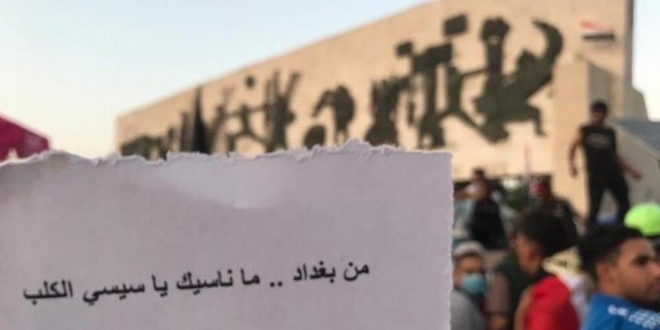 من بغداد .. ما ناسيك يا سيسي الكلب